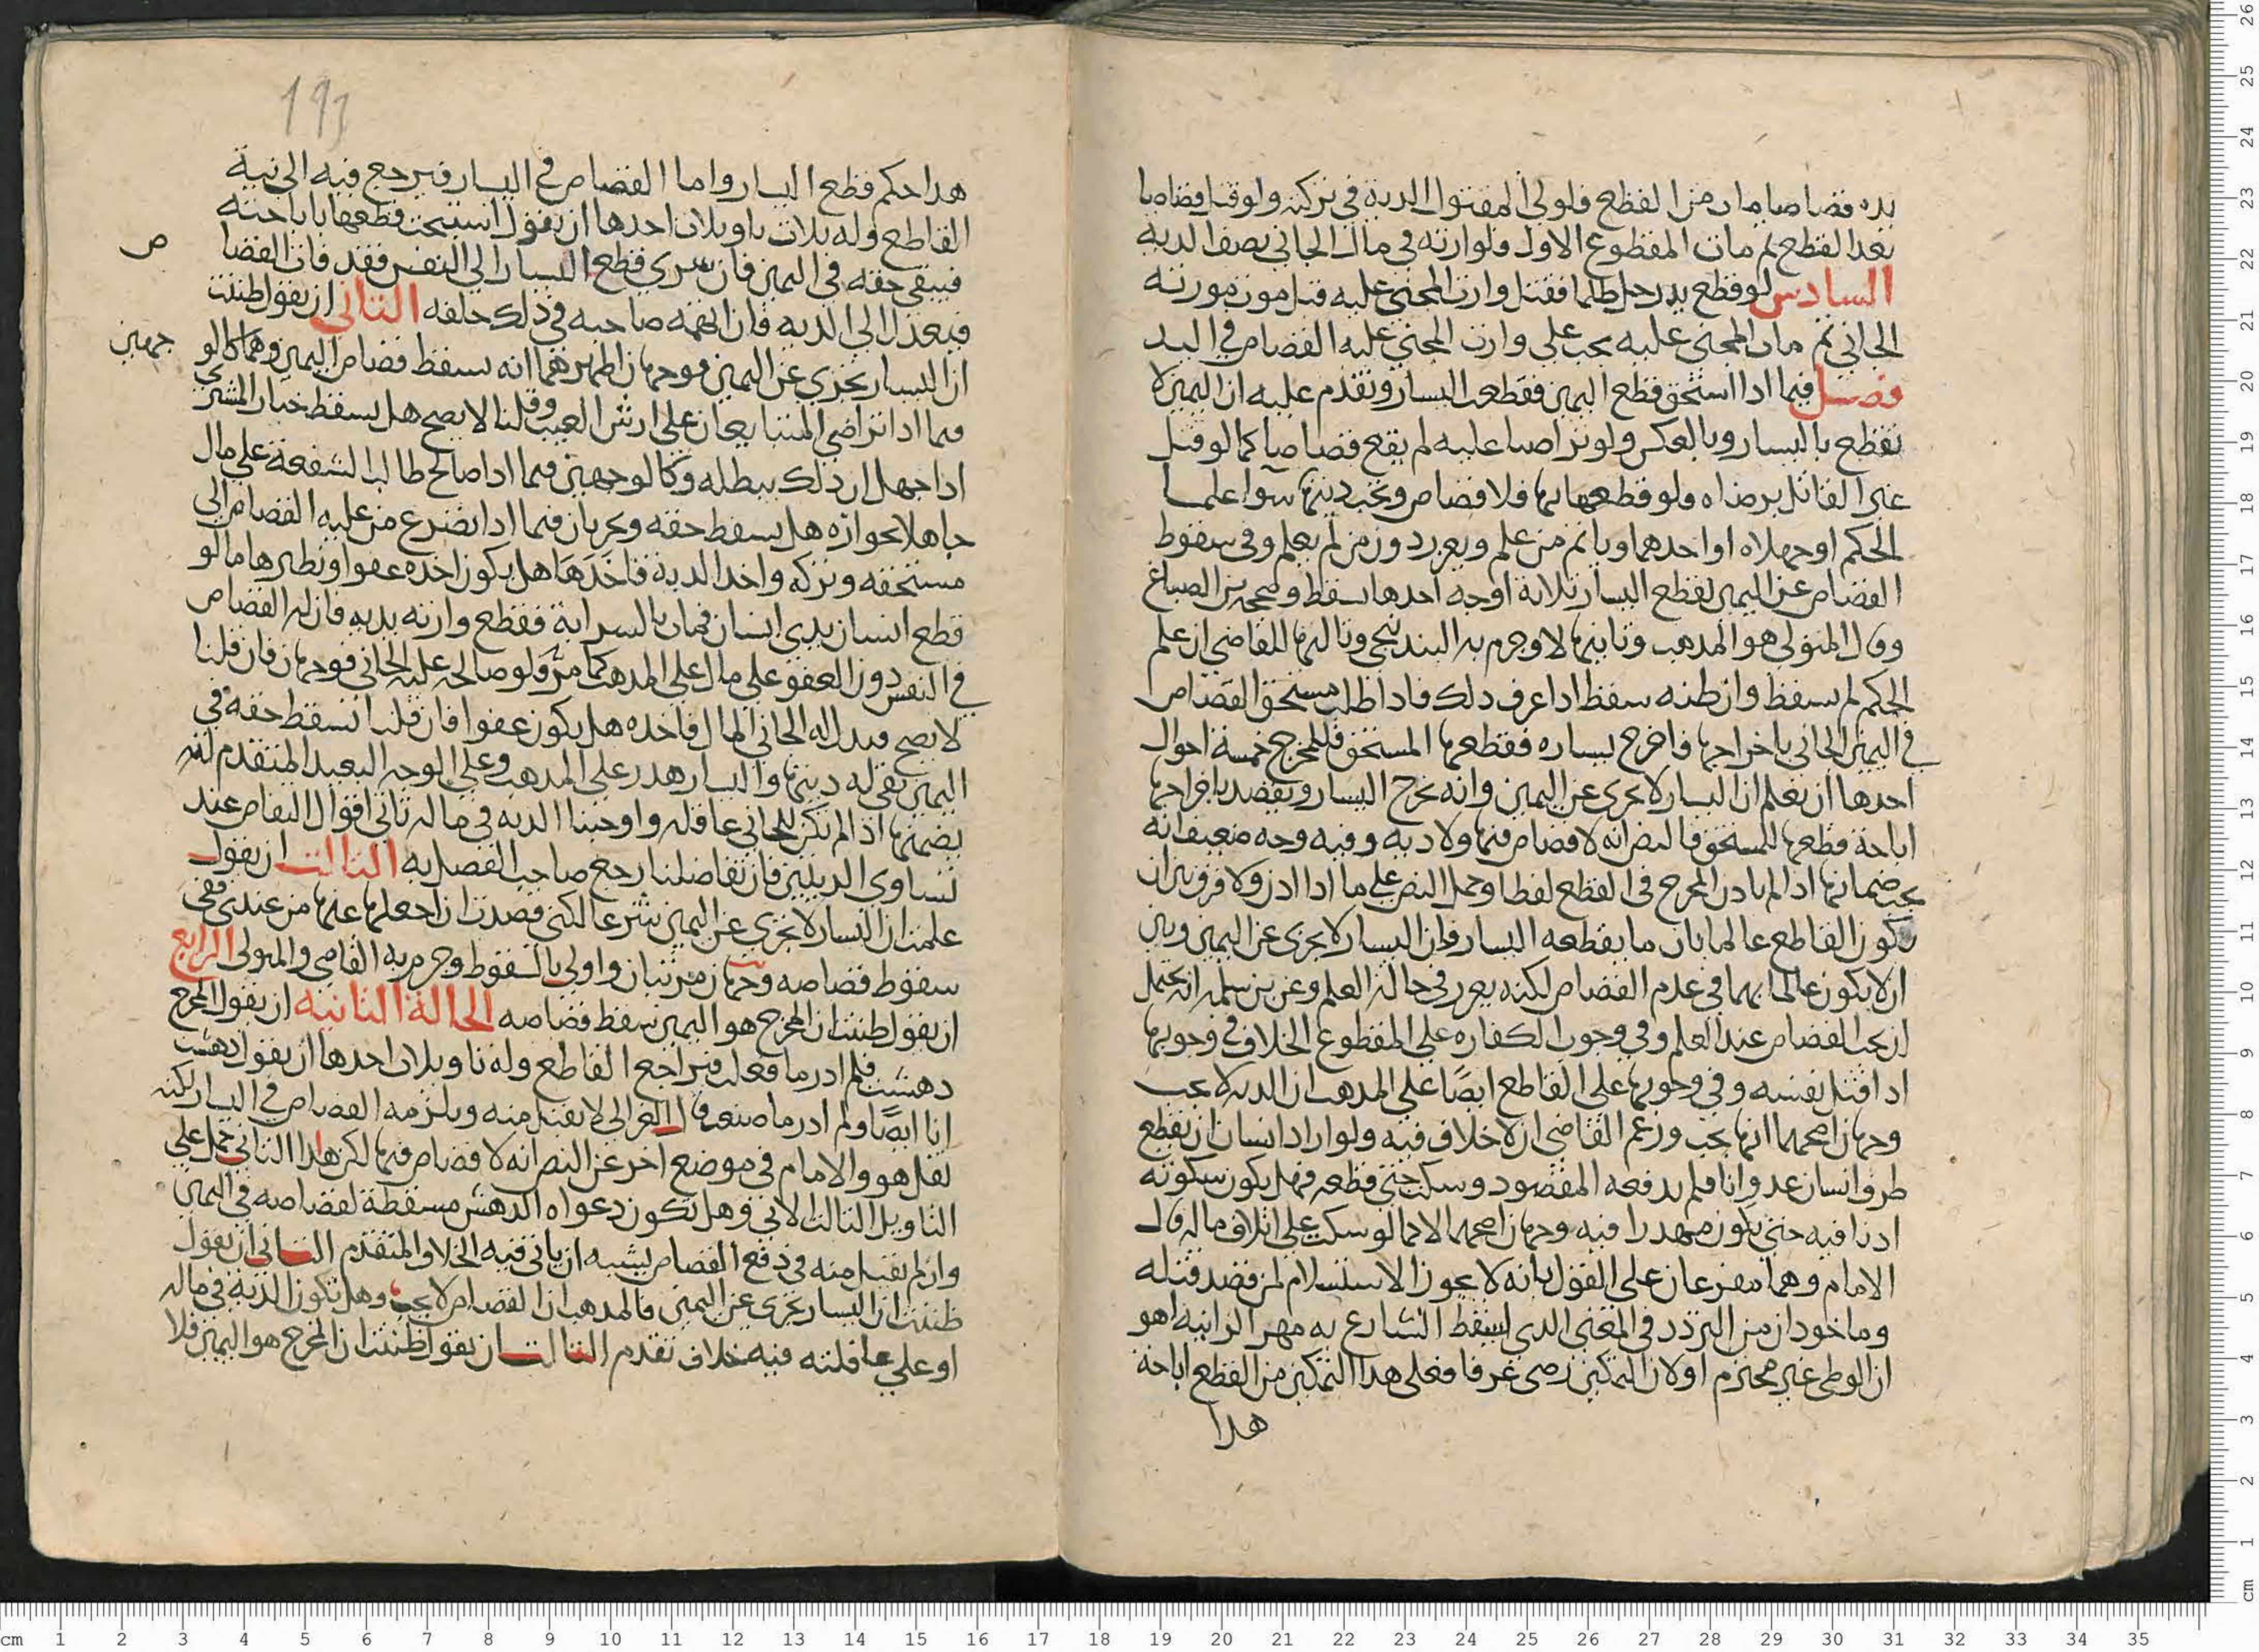 يده قصاصا مات من القطع فلولي المقتول الدية في تركته ولو قتل قصاصا
بعد القطع ثم مات المقطوع الاول فلوارثه في مال الجاني نصف الدية
السادس لو قطع يد رجل ظلما فقتل وارث المجني عليه قبل موت مورثه
الجاني ثم مات المجني عليه يجب على وارث المجني عليه القصاص في اليد
فصل فيما اذا استحق قطع اليمين فقطعت اليسار وتقدم عليه ان اليمين لا
تقطع باليسار وبالعكس ولو تراضيا عليه لم يقع قصاصا كما لو قتل
غير القاتل برضاه ولو قطعها بها فلا قصاص وتجب ديتها سوا علما
الحكم او جهلاه او احدهما وياثم من علم ويعزر دون من لم يعلم وفي سقوط
القصاص عن اليمين لقطع اليسار ثلاثة اوجه احدها يسقط وصححه بن الصباغ
وقال المتولي هو المذهب وثانيها لا وجزم به البندنيجي وثالثها للقاضي ان علم
الحكم لم يسقط وان ظنه سقط اذا عرف ذلك فاذا طلب مستحق القصاص
في اليمين الجاني باخراجها فاخرج يساره فقطعها المستحق فللمخرج خمسة احوال
احدها ان يعلم ان اليسار لا تجزي عن اليمين وانه يخرج اليسار ويقصد باخراجها
اباحة قطعها للمستحق فالنص انه لا قصاص فيها ولا دية وفيه وجه ضعيف انه
يجب ضمانها اذا لم ياذن المخرج في القطع لفظا وحمل النص على ما اذا اذن ولا فرق بين ان
يكون القاطع عالما بان ما يقطعه اليسار وان اليسار لا تجزي عن اليمين وبين
ان لا يكون عالما بهما في عدم القصاص لكنه يعزر في حالة العلم وعن بن سلمه انه يحتمل
ان يجب القصاص عند العلم وفي وجوب الكفاره على المقطوع الخلاف في وجوبها
اذا قتل نفسه وفي وجوبها على القاطع ايضا على المذهب ان الدية لا تجب
وجهان اصحهما انها تجب وزعم القاضي ان لا خلاف فيه ولو اراد انسان ان يقطع
طرف انسان عدوانا فلم يدفعه المقصود وسكت حتى قطعه فهل يكون سكوته
اذنا فيه حتى يكون مهدرا فيه وجهان اصحهما لا كما لو سكت على اتلاف ماله قال
الامام وهما مفرعان على القول بانه لا يجوز الاستسلام لمن قصد قتله
وماخوذان من التردد في المعنى الذي اسقط الشارع به مهر الزانية اهو
ان الوطي غير محترم او لان التمكين رضى عرفا فعلى هذا التمكين من القطع اباحة
هذا
هذا حكم قطع اليسار واما القصاص في اليسار فيرجع فيه الى نية
القاطع وله ثلاث تاويلات احدها ان يقول استبحت قطعها باباحته
فيبقى حقه في اليمين فان سري قطع اليسار الى النفس فقد فات القصا
ص
فيعدل الى الدية فان اتهمه صاحبه في ذلك حلفه الثاني ان يقول ظننت
ان اليسار تجزي عن اليمين فوجهان اظهرهما انه يسقط قصاص اليمين وهما كالو
جهين
فيما اذا تراضي المتبايعان على ارش العيب وقلنا لا يصح هل يسقط خيار المشتري
اذا جهل ان ذلك يبطله وكالوجهين فيما اذا صالح طالب الشفعة على مال
جاهلا بجوازه هل يسقط حقه ويجريان فيما اذا تضرع من عليه القصاص الى
مستحقه وتركه واخذ الدية فاخذها هل يكون اخذه عفوا ونظيرها ما لو
قطع انسان يدي انسان فمات بالسراية فقطع وارثه يديه فان له القصاص
في النفس دون العفو على مال على المذهب كما مر ولو صالحه عليه الجاني فوجهان فان قلنا
لا يصح فبذل له الجاني المال فاخذه هل يكون عفوا فان قلنا تسقط حقه في
اليمين بقي له ديتها واليسار هدر على المذهب وعلى الوجه البعيد المتقدم انه
يضمنها اذا لم تكن للجاني عاقله واوجبنا الدية في ماله تاتي اقوال التقاص عند
تساوي الديتين فان تفاضلتا رجع صاحب الفضل به الثالث ان يقول
علمت ان اليسار لا تجزي عن اليمين شرعا لكني قصدت ان اجعلها عنها من عندي ففي
سقوط قصاصه وجهان مرتبان واولى بالسقوط وجزم به القاضي والمتولي الرابع
ان يقول ظننت ان المخرج هو اليمين سقط قصاصه الحالة الثانية ان يقول المخرج
دهشت فلم ادر ما فعلت فيراجع القاطع وله تاويلات احدها ان يقول دهشت
انا ايضا ولم ادر ما صنعت قال الغزالي لا يقبل منه ويلزمه القصاص في اليسار لكنه
نقل هو والامام في موضع اخر عن النص انه لا قصاص فيها لكن هذا الثاني حمل على
التاويل الثالث الاتي وهل تكون دعواه الدهش مسقطة لقصاصه في اليمين
وان لم تقبل منه في دفع القصاص يشبه ان ياتي فيه الخلاف المتقدم الثاني ان يقول
ظننت ان اليسار تجزي عن اليمين فالمذهب ان القصاص لا يجب وهل تكون الدية في ماله
او على عاقلته فيه خلاف تقدم الثالث ان يقول ظننت ان المخرج هو اليمين فلا